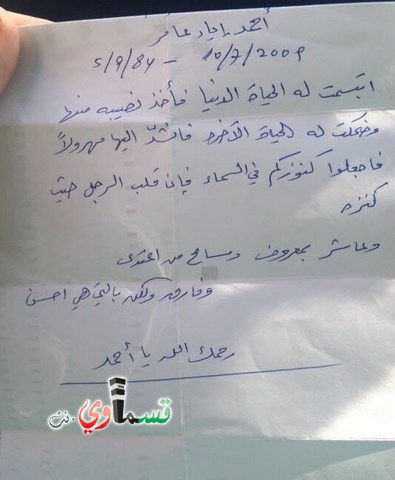 أحمد زياد عامر
5/9/84 - 10/7/2009
ابتسمت له الحياة الدنيا فأخذ نصيبه منها
وضحكت له الحياة الآخرة فانشدّ إليها مهرولاً
فاجعلوا كنوزكم في السماء فإن قلب الرجل حيث
كنزه
وعاشر بمعروف وسامح من اعتدى
وفارق ولكن بالتي هي احسن
رحمك الله يا أحمد
قسماوي نت